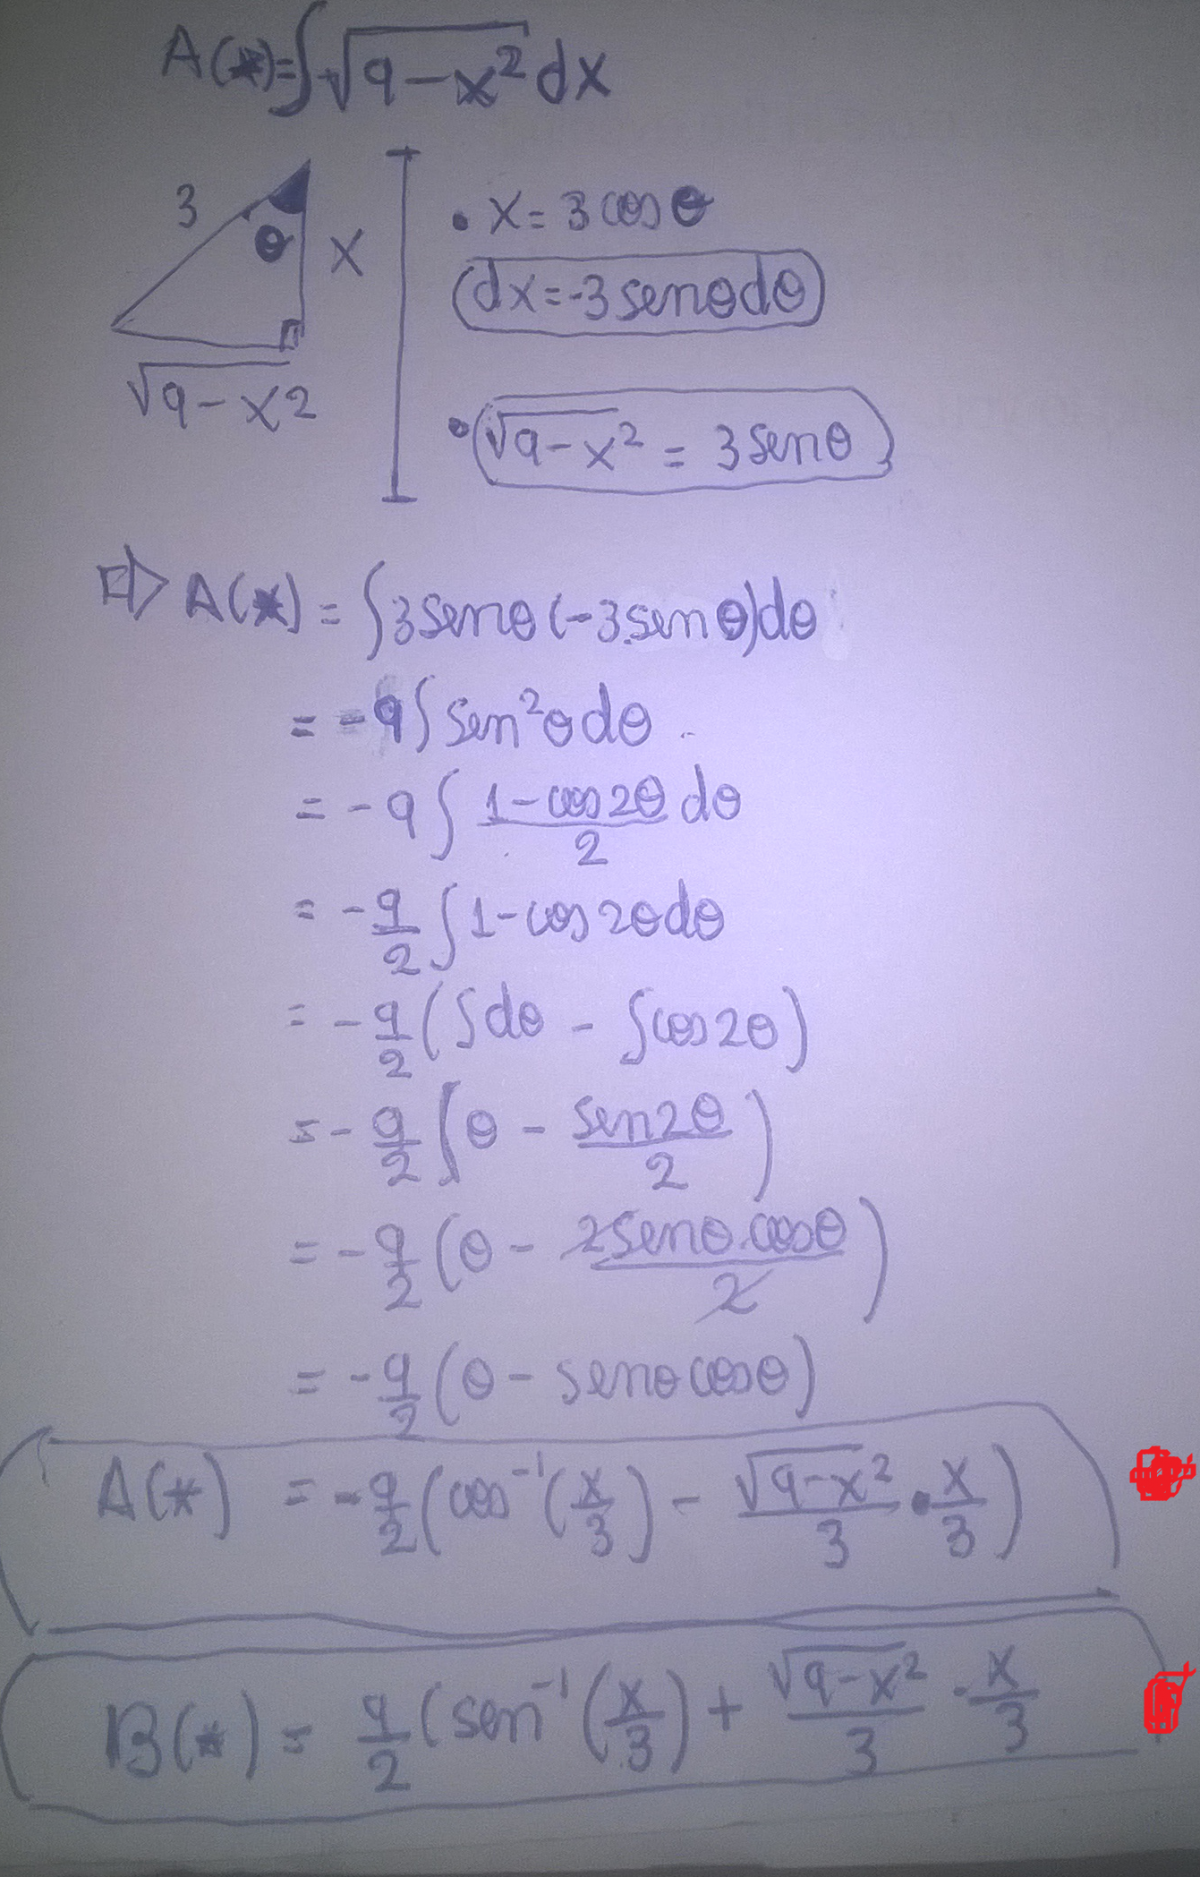 A(*)=∫√9-x² dx
3
θ
x
√9-x2
• x = 3 cos θ
dx = -3 sen θ dθ
• √9-x² = 3 sen θ
⇒ A(*) = ∫3 sen θ (-3.sen θ) dθ
= -9∫ sen²θ dθ
= -9∫ (1-cos 2θ)/2 dθ
= -9/2 ∫1-cos 2θ dθ
= -9/2 (∫dθ - ∫cos 2θ)
= -9/2 (θ - sen 2θ/2)
= -9/2 (θ - 2 sen θ.cos θ/2)
= -9/2 (θ - sen θ cos θ)
A(*) = -9/2 (cos⁻¹(x/3) - √9-x²/3 • x/3)
B(*) = 9/2 (sen⁻¹(x/3) + √9-x²/3 · x/3